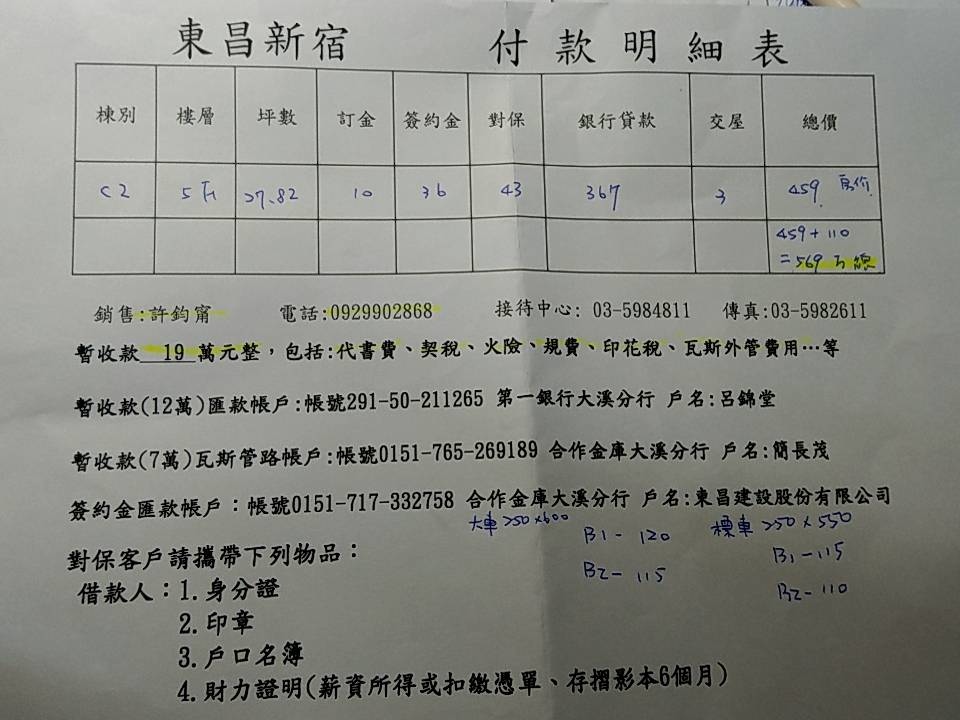 東昌新宿 付款明細表
棟別 樓層 坪數 訂金 簽約金 對保 銀行貸款 交屋 總價
C2 5F 27.82 10 36 43 367 3 459 房价
459+110
=569万總
銷售:許鈞甯 電話:0929902868 接待中心: 03-5984811 傳真:03-5982611
暫收款 19 萬元整，包括:代書費、契稅、火險、規費、印花稅、瓦斯外管費用…等
暫收款(12萬)匯款帳戶:帳號291-50-211265 第一銀行大溪分行 戶名:呂錦堂
暫收款(7萬)瓦斯管路帳戶:帳號0151-765-269189 合作金庫大溪分行 戶名:簡長茂
簽約金匯款帳戶：帳號0151-717-332758 合作金庫大溪分行 戶名:東昌建設股份有限公司
大車250x600 標車250x550
B1- 120 B1-115
B2- 115 B2-110
對保客戶請攜帶下列物品：
借款人：1.身分證
2.印章
3.戶口名簿
4.財力證明(薪資所得或扣繳憑單、存摺影本6個月)